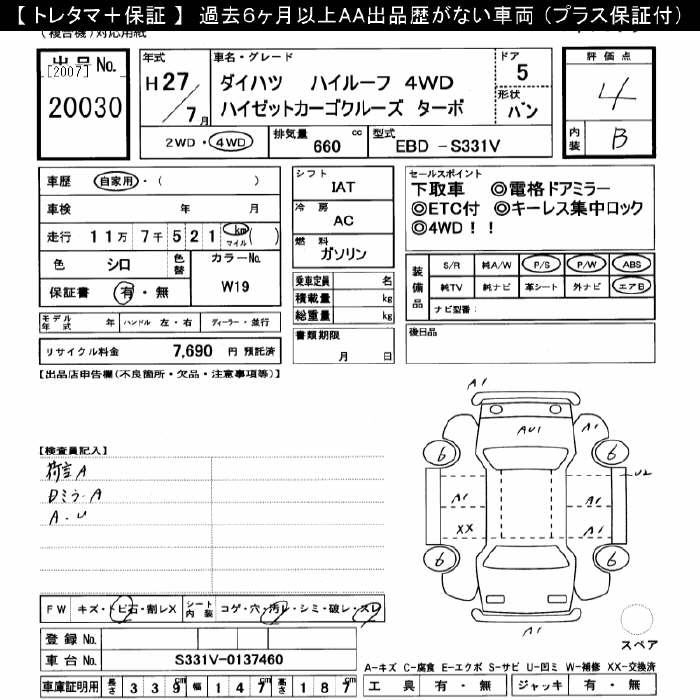 【 トレタマ＋保証 】 過去6ヶ月以上AA出品歴がない車両 (プラス保証付)
(複合機)対応用紙
出品 No.
[2007]
20030
年式
H27
7月
車名・グレード
ダイハツ ハイルーフ 4WD
ハイゼットカーゴクルーズ ターボ
ドア
5
形状
バン
2WD・4WD
排気量
660 cc
型式
EBD -S331V
評価点
4
内装
B
車歴 自家用・( )
車検 年 月
走行 11万 7千 521 km マイル ( )
色 シロ 色替 カラーNo. W19
保証書 有・無
モデル年式 年 ハンドル 左・右 ディーラー・並行
リサイクル料金 7,690 円 預託済
シフト
IAT
冷房
AC
燃料
ガソリン
乗車定員 名
積載量 kg
総重量 kg
書類期限
月 日
セールスポイント
下取車 ◎電格ドアミラー
◎ETC付 ◎キーレス集中ロック
◎4WD！！
装備品
S/R 純A/W P/S P/W ABS
純TV 純ナビ 革シート 外ナビ エアB
ナビ型番:
後日品
【出品店申告欄(不良箇所・欠品・注意事項等)】
【検査員記入】
荷室 A
Dミラー A
A・U
A1
AU1
A1
6
6
U2
A1
A1
XX
A1
6
6
A1
スペア
FW キズ・トビ石・割レX シート内装 コゲ・穴・汚レ・シミ・破レ・スレ
2
2
登録 No.
車台 No. S331V-0137460
車庫証明用 長さ 339cm 幅 147cm 高さ 187cm
A-キズ C-腐食 E-エクボ S-サビ U-凹ミ W-補修 XX-交換済
工具 有・無 ジャッキ 有・無